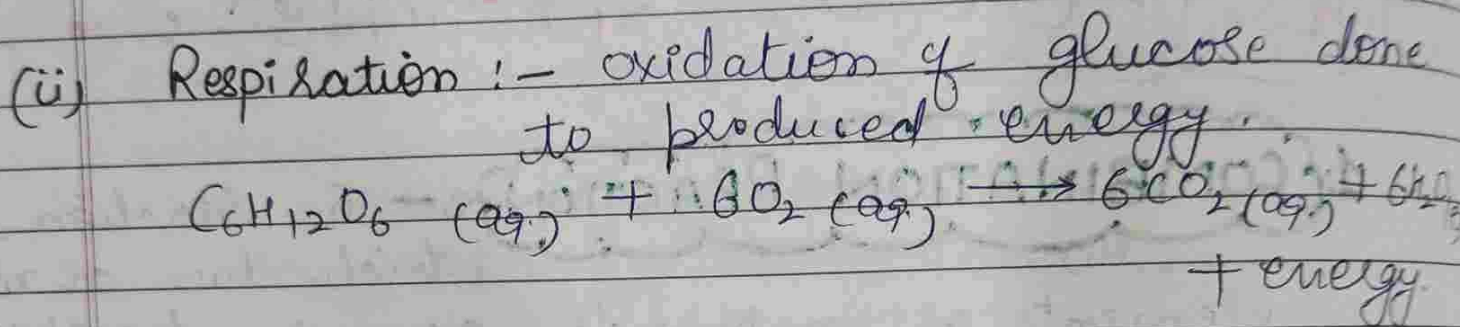 (ii) Respiration :- oxidation of glucose done
to produced energy.
C6H12O6 (aq.) + 6O2 (aq.) → 6CO2 (aq.) + 6H2O
+ energy